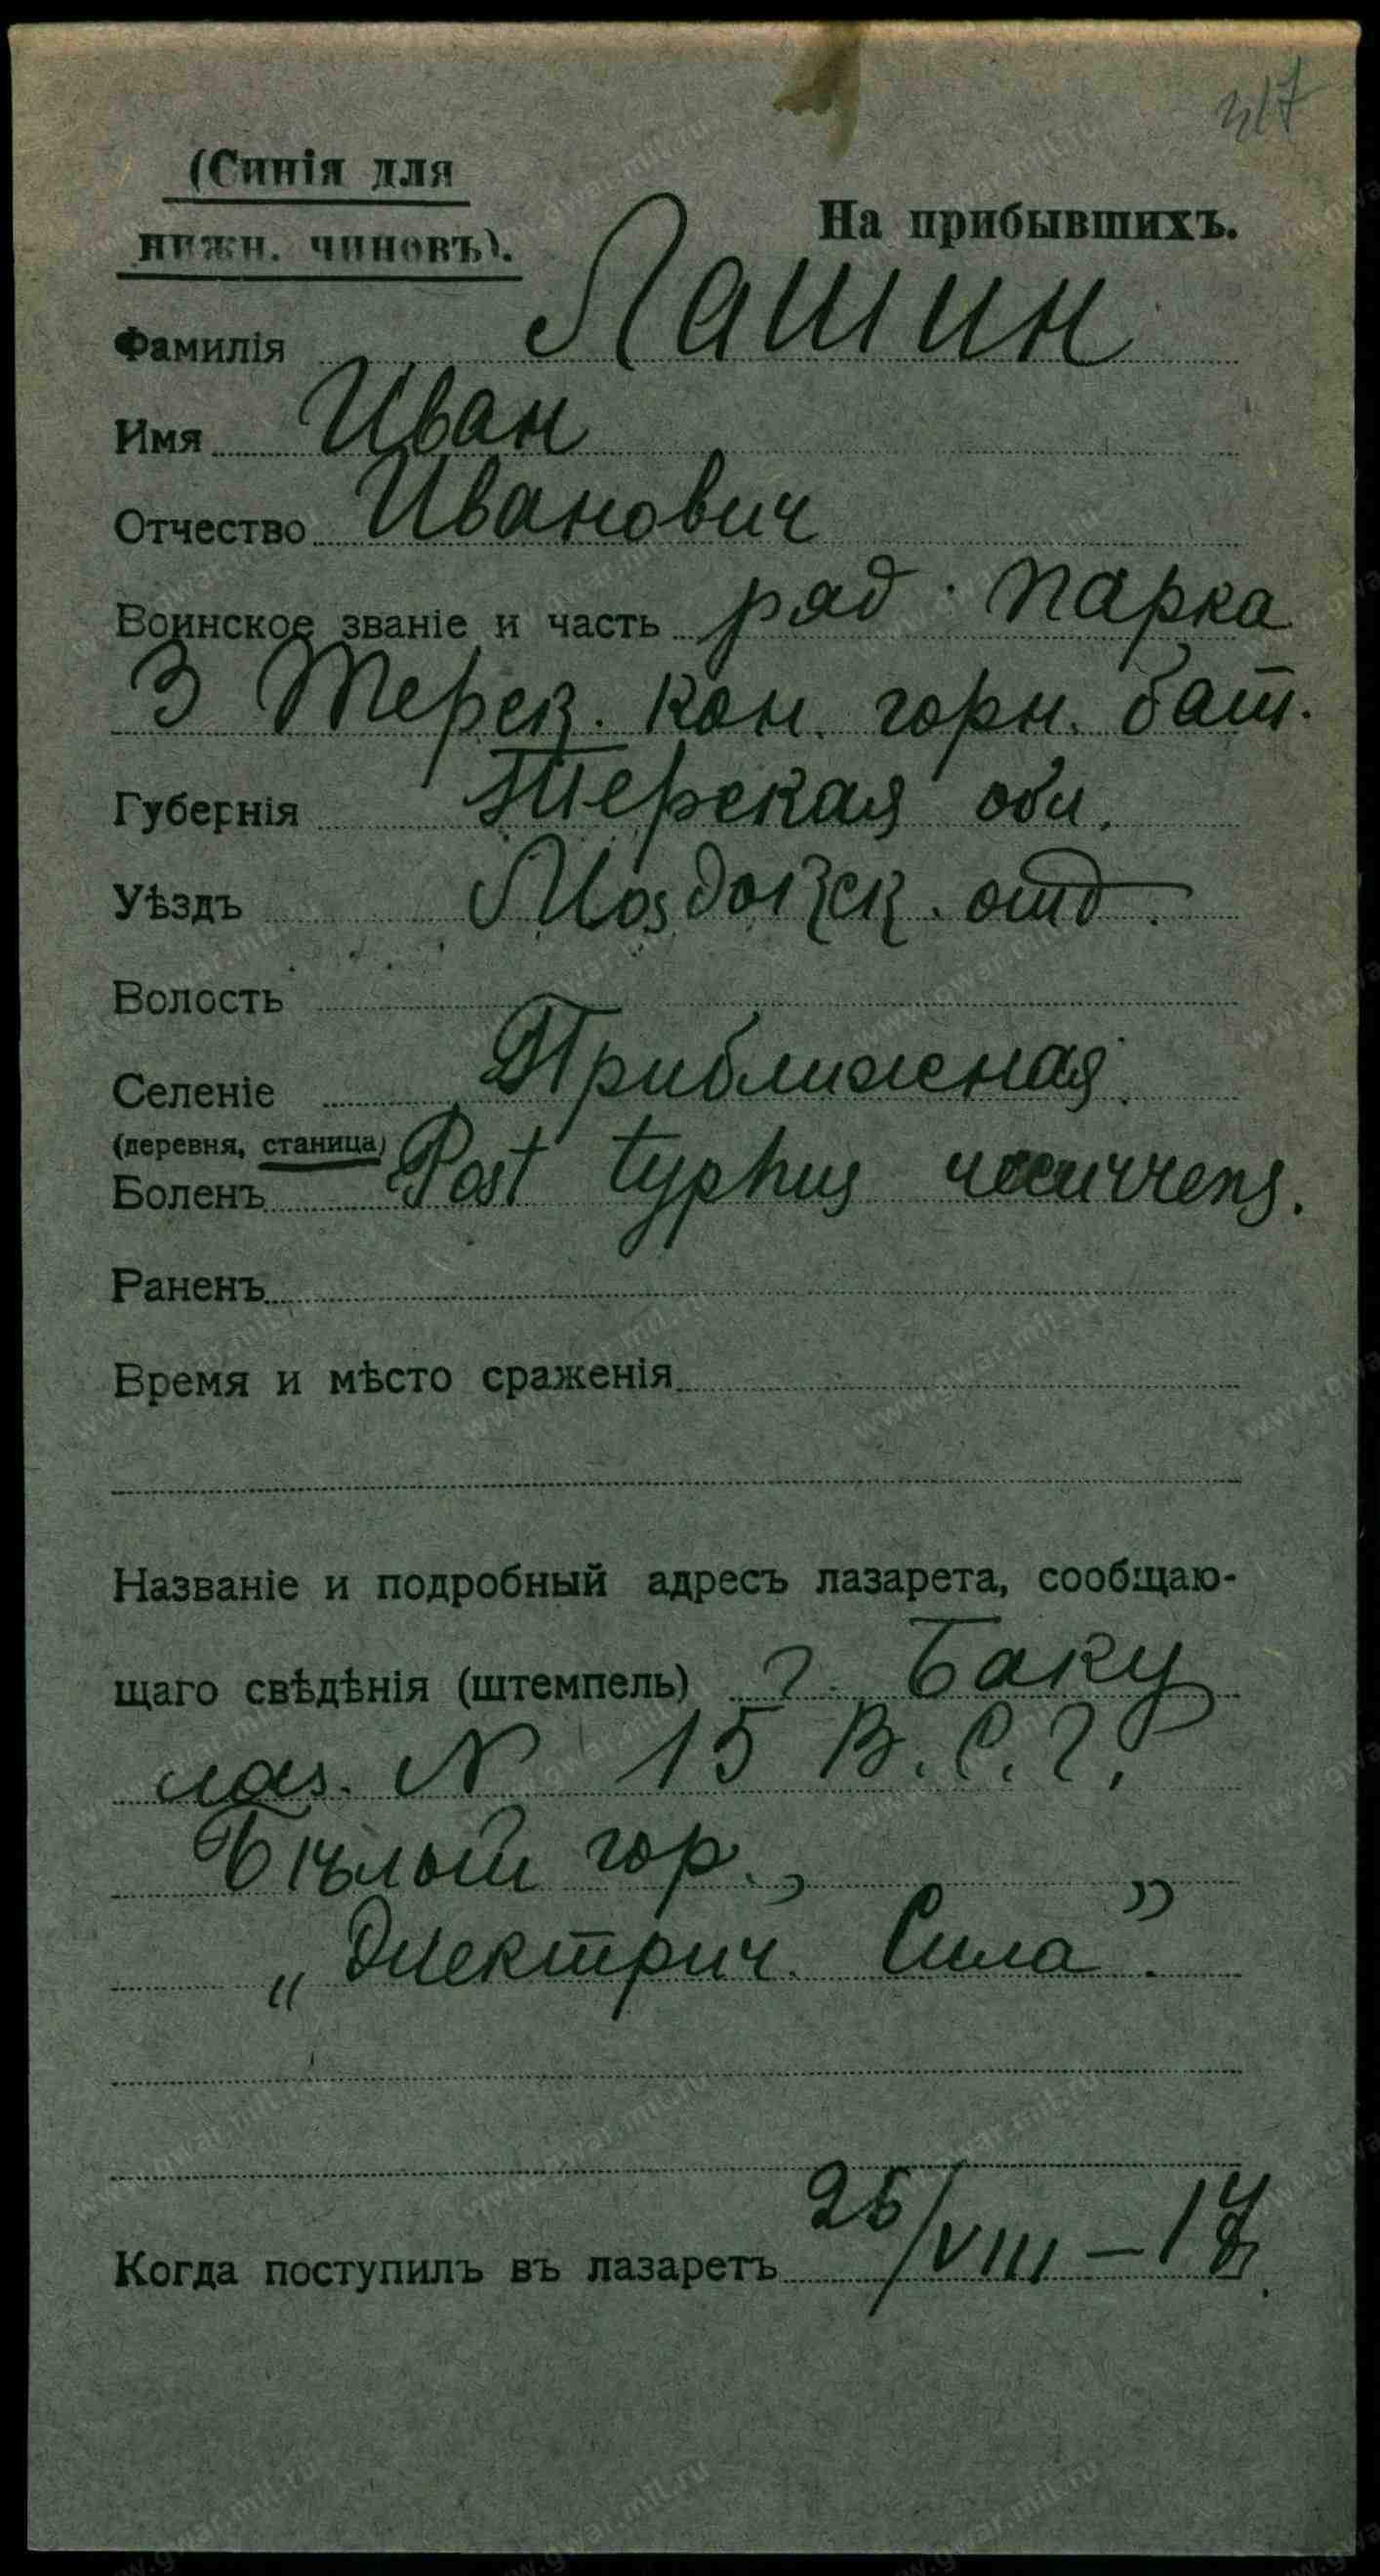 417
(Синія для
нижн. чиновъ).
На прибывшихъ.
Фамилія Лашин
Имя Иван
Отчество Иванович
Воинское званіе и часть ряд. парка
3 Терск. кон. горн. бат.
Губернія Терская обл.
Уѣздъ Моздокск. отд.
Волость
Селеніе Приближная
(деревня, станица)
Боленъ Post typhus
Раненъ
Время и мѣсто сраженія
Названіе и подробный адресъ лазарета, сообщаю-
щаго свѣдѣнія (штемпель) г. Баку
лаз. N 15 В.С.Г.
Бѣлый гор.,
„Электрич. Сила”.
Когда поступилъ въ лазаретъ 25/VIII-17
www.gwar.mil.ru